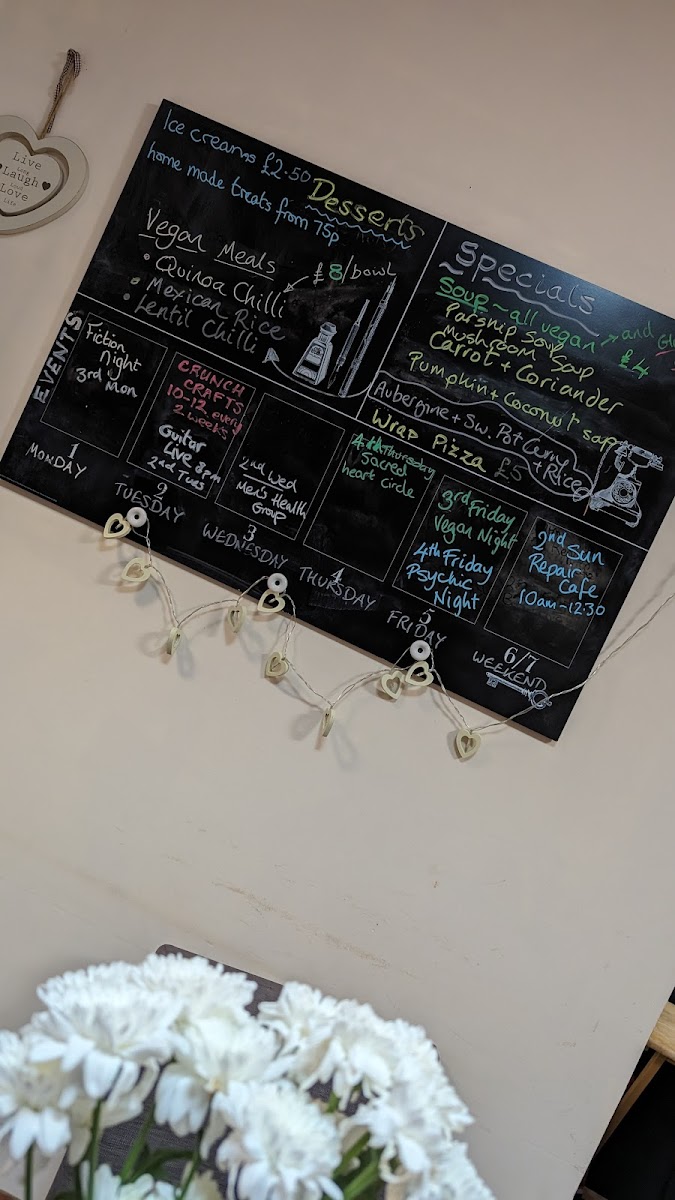 Live
Laugh
Love
Life
Ice creams £2.50
home made treats from 75p
Desserts
Vegan Meals
• Quinoa Chilli
• Mexican Rice
• Lentil Chilli
£8/bowl
Specials
Soup ~ all vegan and
£4
Parsnip Soup
Mushroom Soup
Carrot + Coriander
Pumpkin + Coconut
Aubergine + Sw. Pot Curry
+ Rice
Wrap Pizza £5
EVENTS
Fiction
Night
3rd Mon
1
MONDAY
CRUNCH
CRAFTS
10-12 every
2 weeks
Guitar
Live 8pm
2nd Tues
2
TUESDAY
2nd Wed
Men's Health
Group
3
WEDNESDAY
4th Thursday
Sacred
heart circle
4
THURSDAY
3rd Friday
Vegan Night
4th Friday
Psychic
Night
5
FRIDAY
2nd Sun
Repair
Cafe
10am-12:30
6/7
WEEKEND